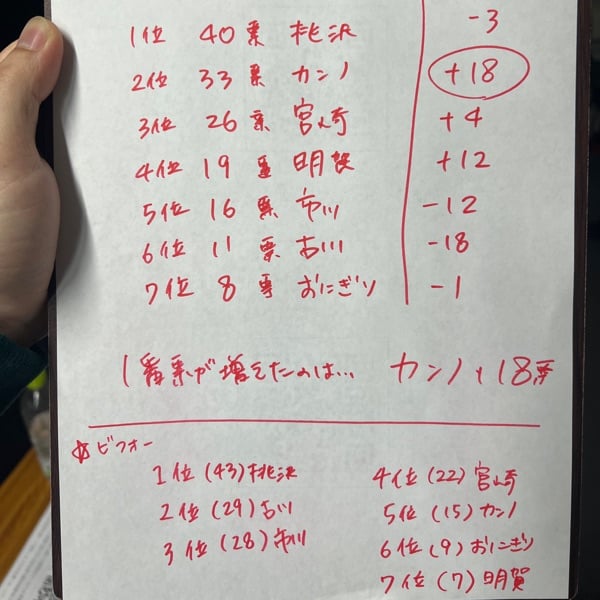 1位 40票 桃沢 -3
2位 33票 カンノ +18
3位 26票 宮崎 +4
4位 19票 明賀 +12
5位 16票 市川 -12
6位 11票 古川 -18
7位 8票 おにぎり -1
1番票が増えたのは… カンノ +18票
☆ビフォー
1位(43)桃沢
2位(29)古川
3位(28)市川
4位(22)宮崎
5位(15)カンノ
6位(9)おにぎり
7位(7)明賀